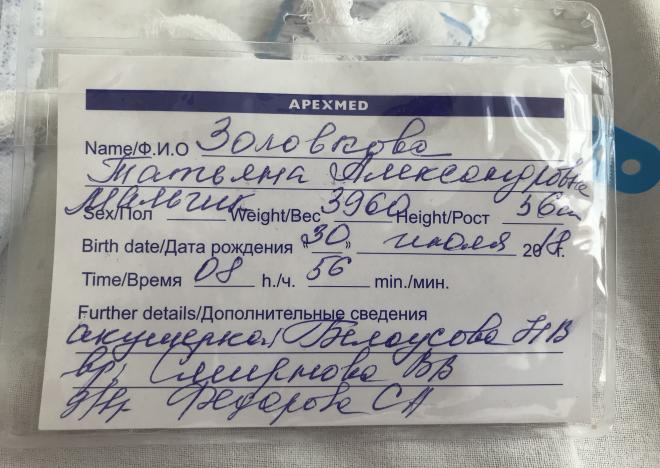 APEXMED
Name/Ф.И.О Золовкова
Татьяна Александровна
Sex/Пол Мальчик Weight/Вес 3960 Height/Рост 56см
Birth date/Дата рождения "30" июля 2018 г.
Time/Время 08 h./ч. 56 min./мин.
Further details/Дополнительные сведения
акушерка Белоусова НВ
вр. Смирнова ВВ
Федорова СА